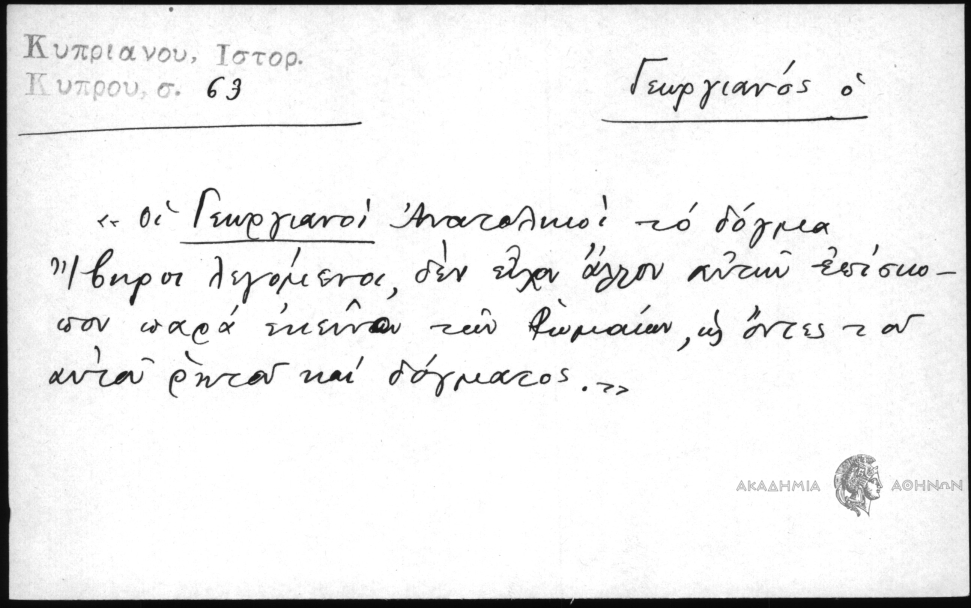 Κυπριανου, Ιστορ.
Κυπρου, σ. 63
Γεωργιανός ὁ
« οἱ Γεωργιανοὶ Ἀνατολικοὶ τὸ δόγμα
Ἴβηροι λεγόμενοι, δὲν εἶχον ἄλλον αὐτῶν ἐπίσκο-
πον παρὰ ἐκεῖνον τῶν Ῥωμαίων, ὡς ὄντες τοῦ
αὐτοῦ ῥητοῦ καὶ δόγματος. »
ΑΚΑΔΗΜΙΑ ΑΘΗΝΩΝ